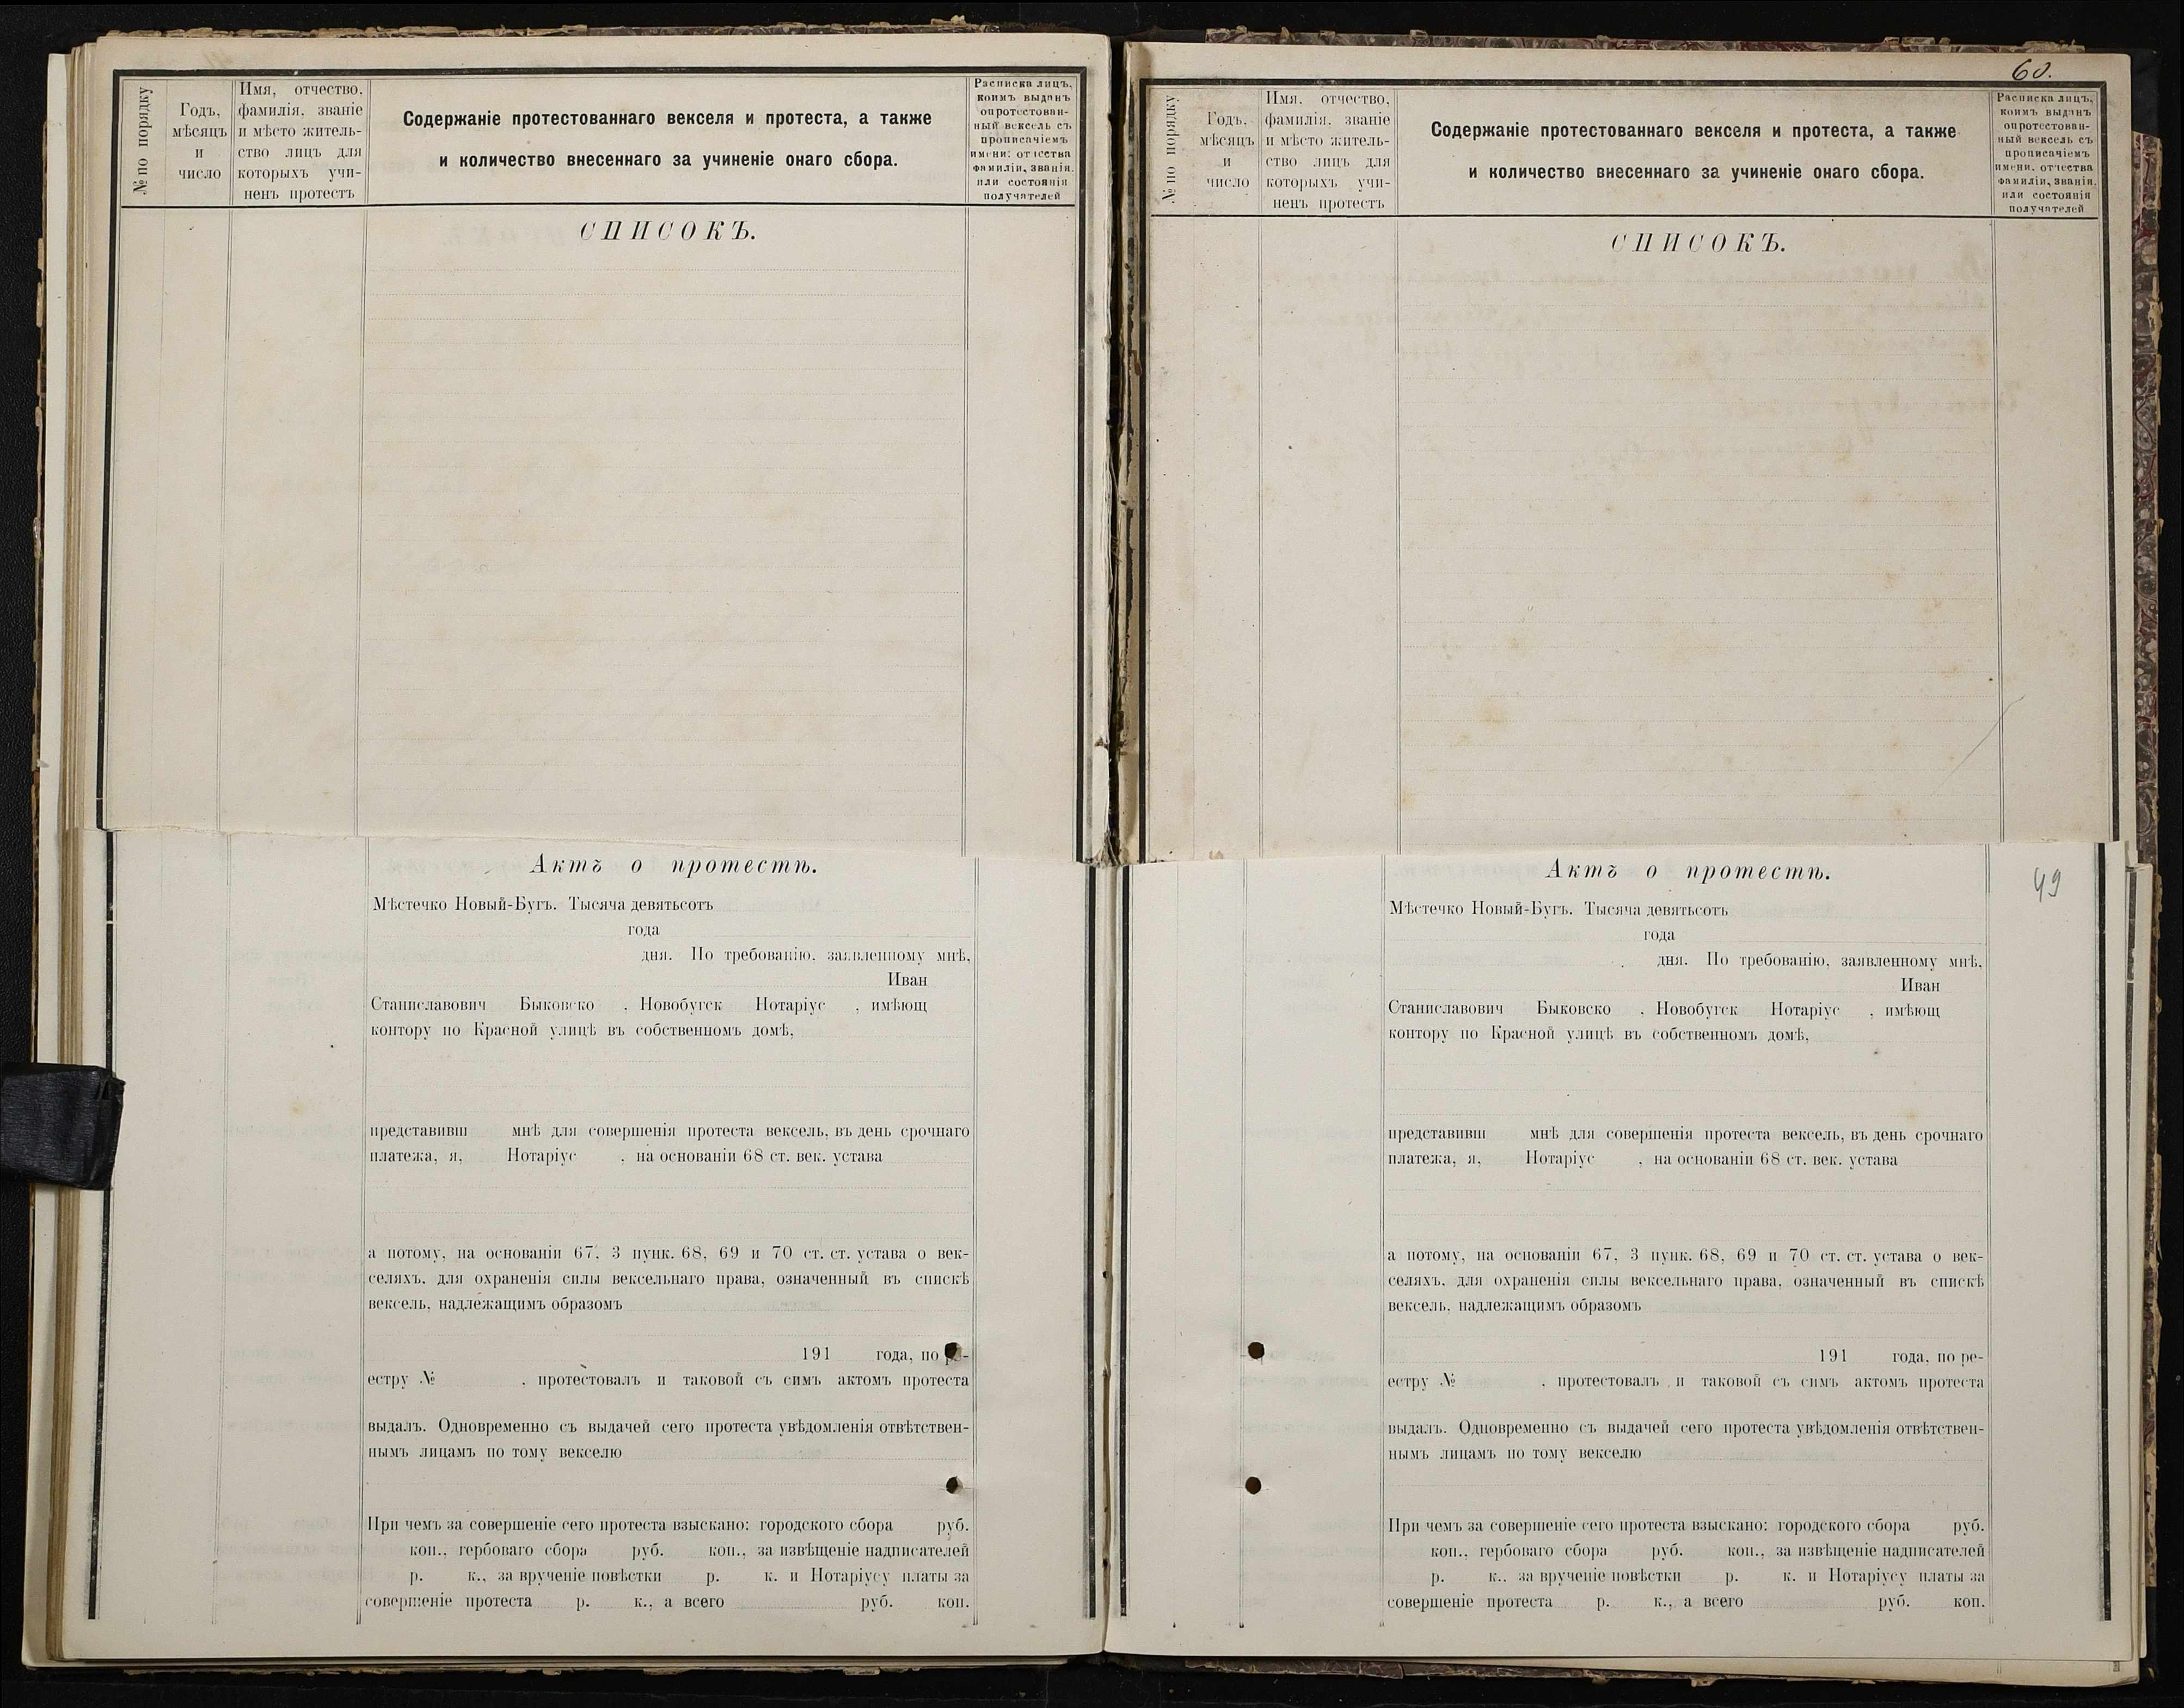 № по порядку
Годъ,
мѣсяцъ
и
число
Имя, отчество,
фамилія, званіе
и мѣсто житель-
ство лицъ для
которыхъ учи-
ненъ протестъ
Содержаніе протестованнаго векселя и протеста, а также
и количество внесеннаго за учиненіе онаго сбора.
Расписка лицъ,
коимъ выданъ
опротестован-
ный вексель съ
прописаніемъ
имени, отчества
фамиліи, званія,
или состоянія
получателей
СПИСОКЪ.
Актъ о протестѣ.
Мѣстечко Новый-Бугъ. Тысяча девятьсотъ
года
дня. По требованію, заявленному мнѣ,
Иван
Станиславович Быковско , Новобугск Нотаріус , имѣющ
контору по Красной улицѣ въ собственномъ домѣ,
представивш мнѣ для совершенія протеста вексель, въ день срочнаго
платежа, я, Нотаріус , на основаніи 68 ст. век. устава
а потому, на основаніи 67, 3 пунк. 68, 69 и 70 ст. ст. устава о век-
селяхъ, для охраненія силы вексельнаго права, означенный въ спискѣ
вексель, надлежащимъ образомъ
191 года, по ре-
естру № , протестовалъ и таковой съ симъ актомъ протеста
выдалъ. Одновременно съ выдачей сего протеста увѣдомленія отвѣтствен-
нымъ лицамъ по тому векселю
При чемъ за совершеніе сего протеста взыскано: городского сбора руб.
коп., гербоваго сбора руб. коп., за извѣщеніе надписателей
р. к., за врученіе повѣстки р. к. и Нотаріусу платы за
совершеніе протеста р. к., а всего руб. коп.
60.
№ по порядку
Годъ,
мѣсяцъ
и
число
Имя, отчество,
фамилія, званіе
и мѣсто житель-
ство лицъ для
которыхъ учи-
ненъ протестъ
Содержаніе протестованнаго векселя и протеста, а также
и количество внесеннаго за учиненіе онаго сбора.
Расписка лицъ,
коимъ выданъ
опротестован-
ный вексель съ
прописаніемъ
имени, отчества
фамиліи, званія,
или состоянія
получателей
СПИСОКЪ.
Актъ о протестѣ.
49
Мѣстечко Новый-Бугъ. Тысяча девятьсотъ
года
дня. По требованію, заявленному мнѣ,
Иван
Станиславович Быковско , Новобугск Нотаріус , имѣющ
контору по Красной улицѣ въ собственномъ домѣ,
представивш мнѣ для совершенія протеста вексель, въ день срочнаго
платежа, я, Нотаріус , на основаніи 68 ст. век. устава
а потому, на основаніи 67, 3 пунк. 68, 69 и 70 ст. ст. устава о век-
селяхъ, для охраненія силы вексельнаго права, означенный въ спискѣ
вексель, надлежащимъ образомъ
191 года, по ре-
естру № , протестовалъ и таковой съ симъ актомъ протеста
выдалъ. Одновременно съ выдачей сего протеста увѣдомленія отвѣтствен-
нымъ лицамъ по тому векселю
При чемъ за совершеніе сего протеста взыскано: городского сбора руб.
коп., гербоваго сбора руб. коп., за извѣщеніе надписателей
р. к., за врученіе повѣстки р. к. и Нотаріусу платы за
совершеніе протеста р. к., а всего руб. коп.